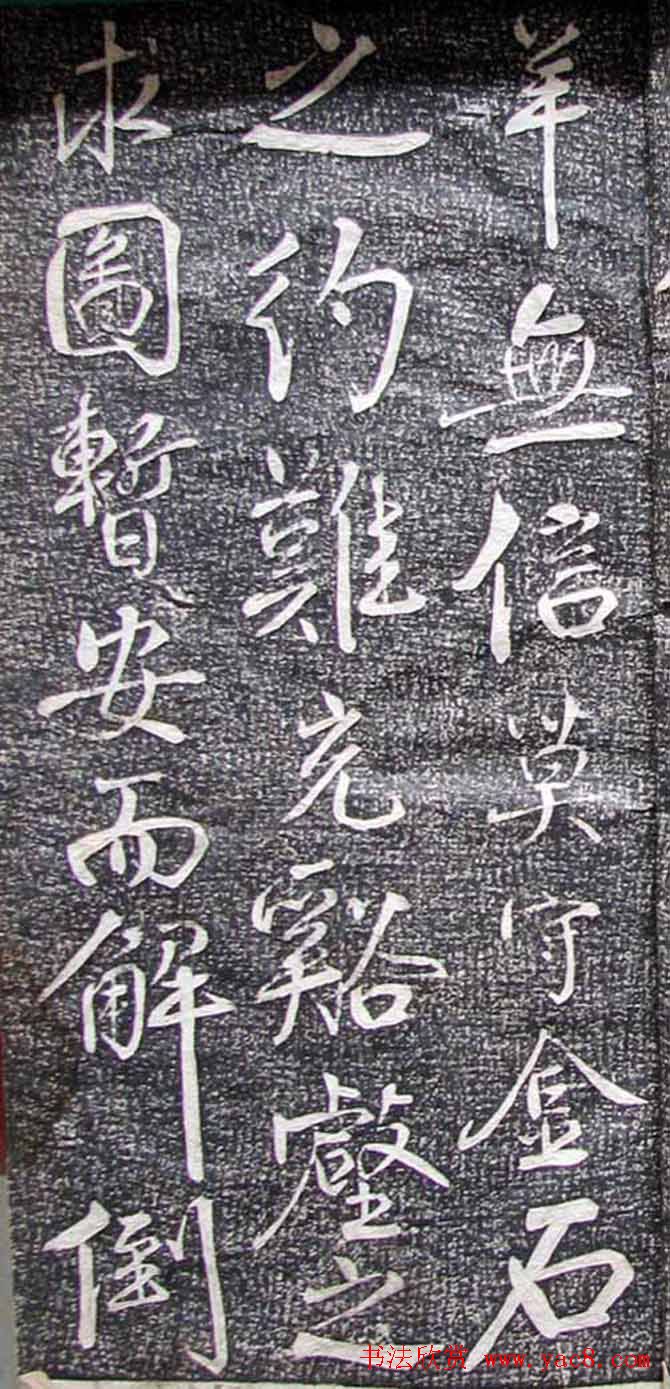 羊無信莫守金石
之約難充谿壑之
求圖暫安而解倒
书法欣赏 www.yac8.com